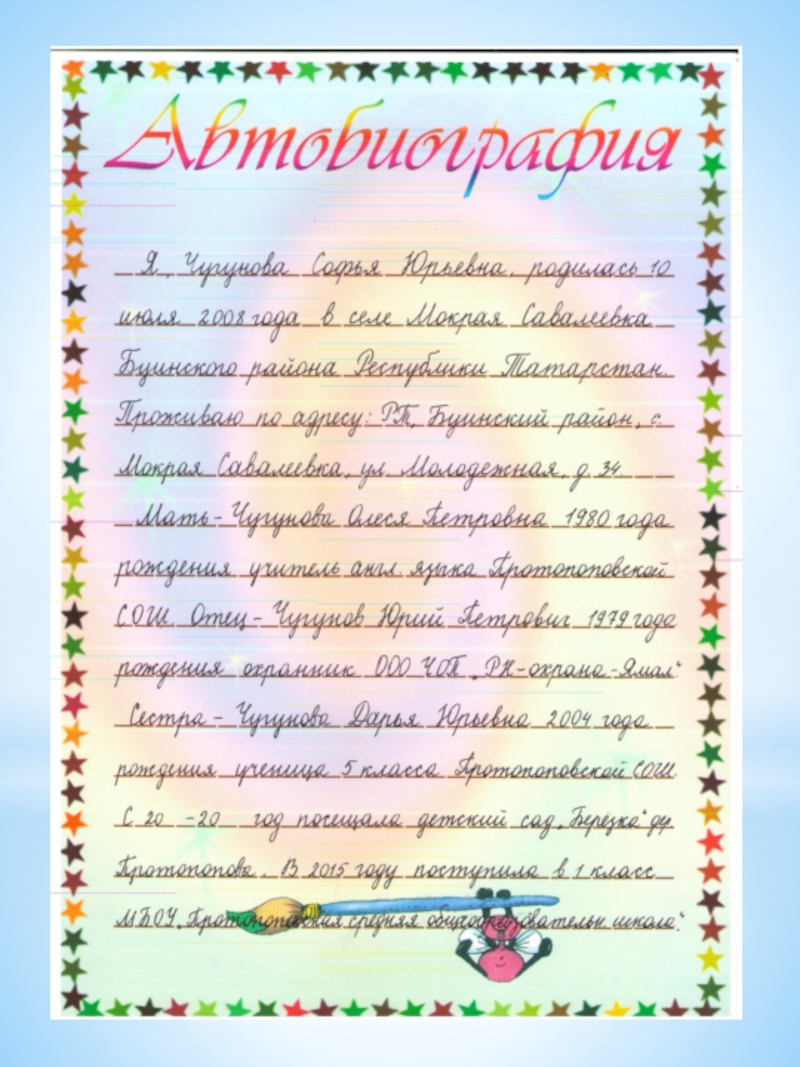 Автобиография
Я, Чугунова Софья Юрьевна, родилась 10
июля 2008 года в селе Мокрая Савалеевка
Буинского района Республики Татарстан.
Проживаю по адресу: РТ, Буинский район, с.
Мокрая Савалеевка, ул. Молодежная, д. 34
Мать - Чугунова Олеся Петровна 1980 года
рождения учитель англ. языка Протопоповской
СОШ. Отец - Чугунов Юрий Петрович 1979 года
рождения охранник ООО ЧОП „РН-охрана-Ямал"
Сестра - Чугунова Дарья Юрьевна 2004 года
рождения ученица 5 класса Протопоповской СОШ.
С 20 -20 год посещала детский сад „Берёзка" дер
Протопопова. В 2015 году поступила в 1 класс
МБОУ „Протопоповская средняя общеобразовательн школа".